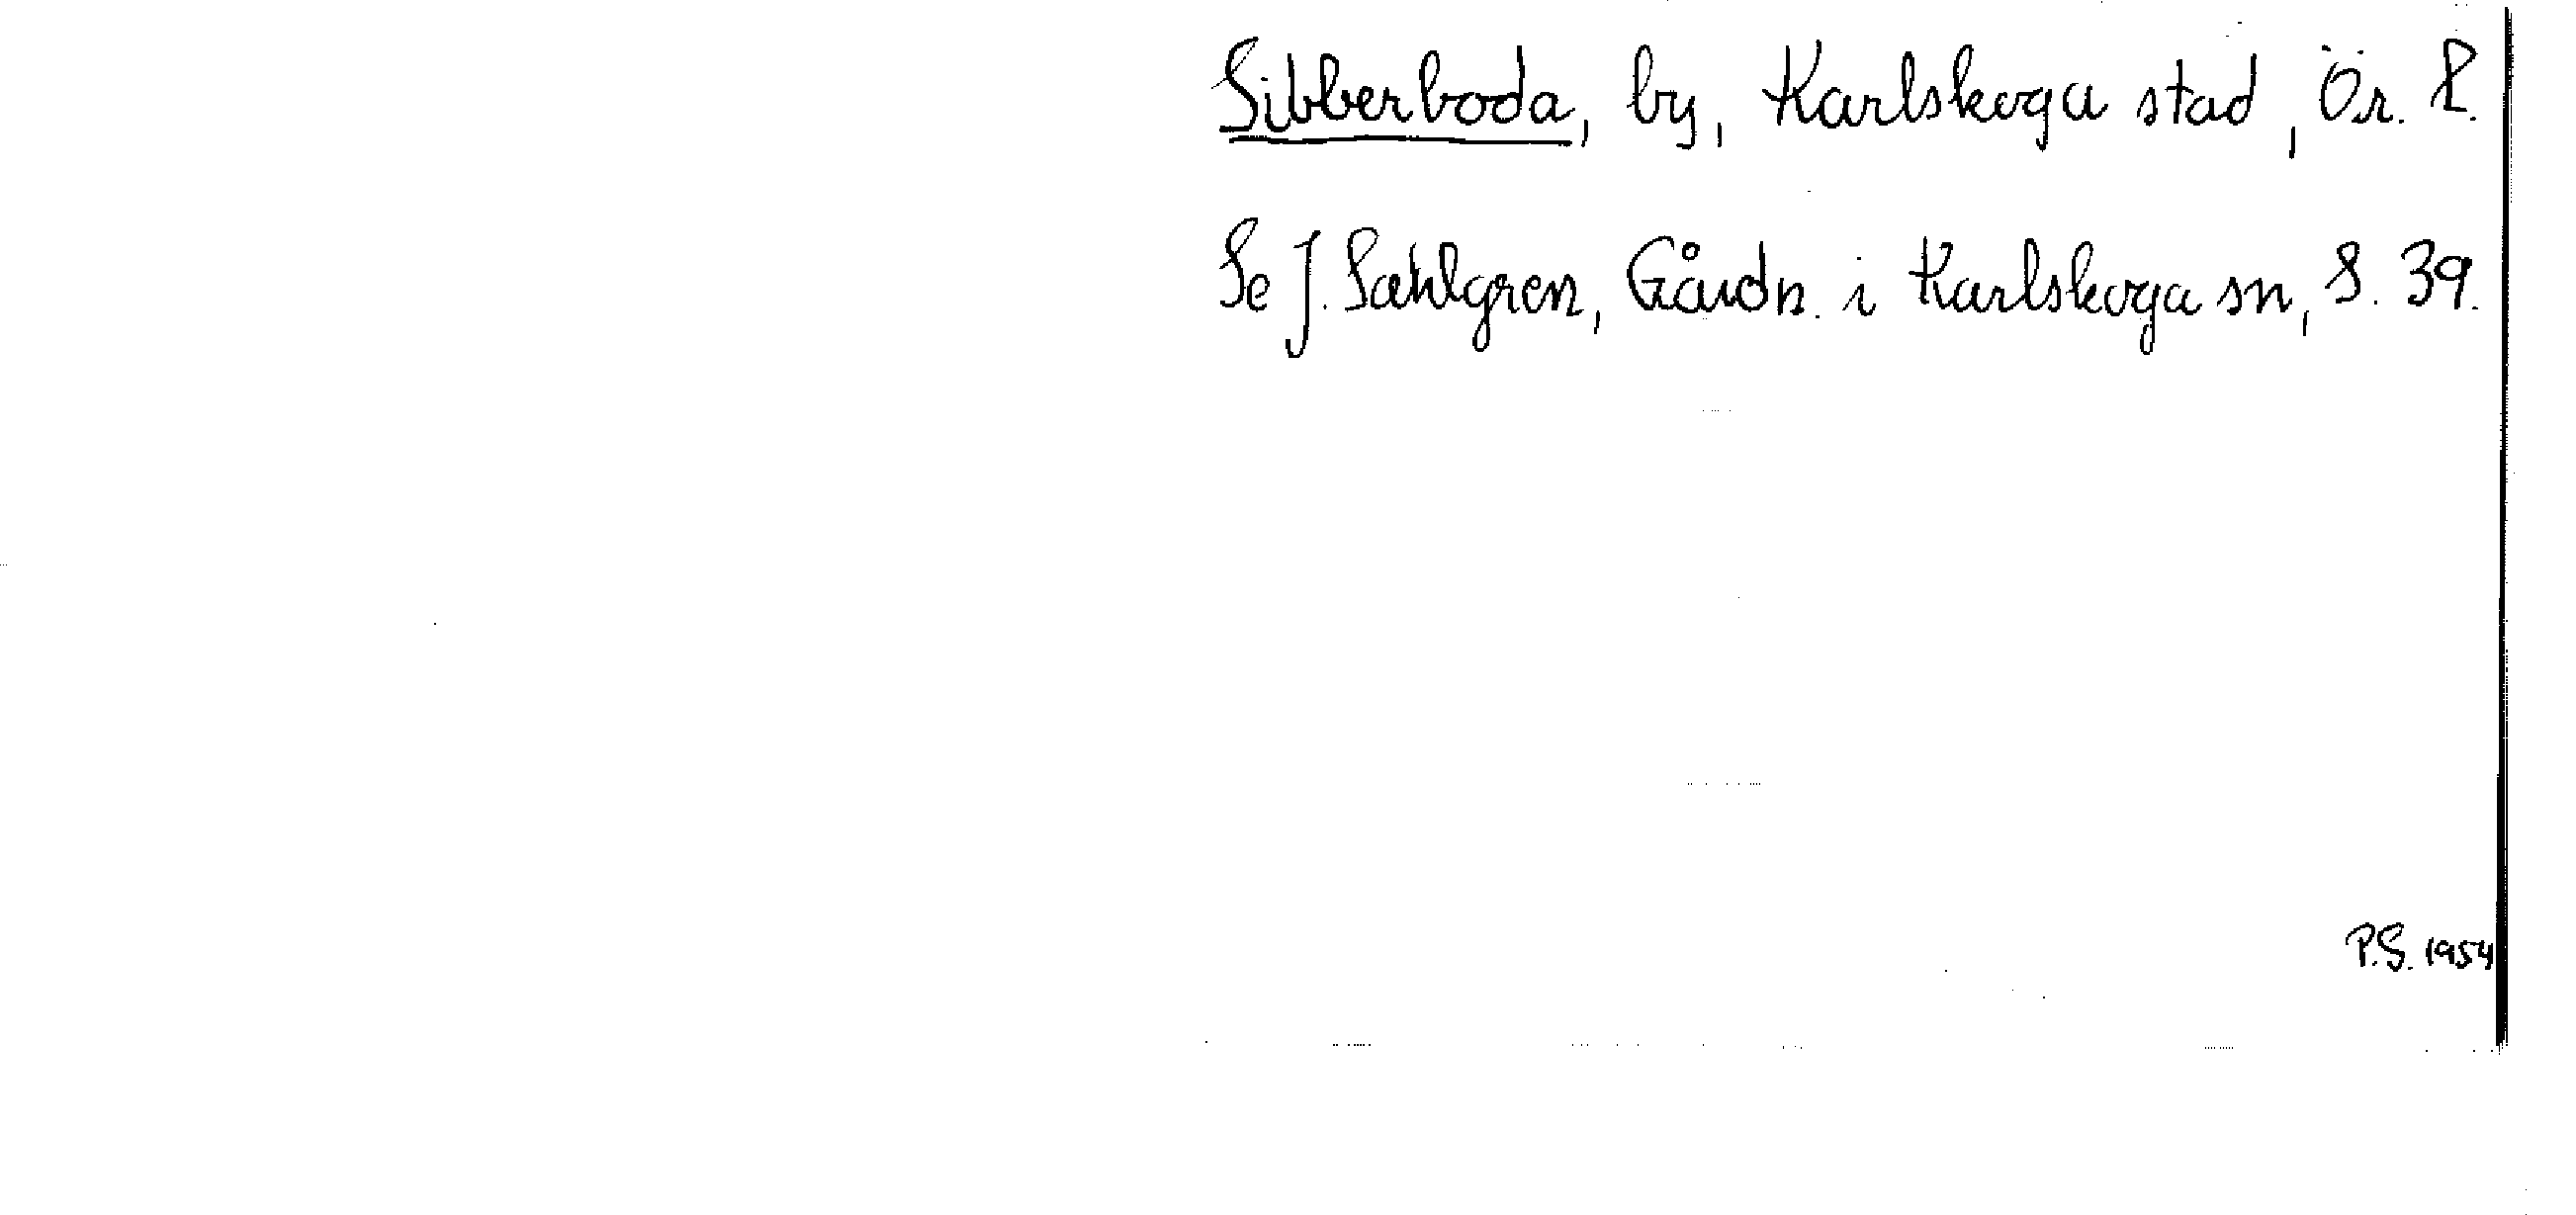 Sibberboda, by, Karlskoga stad, Ör. l.
Se J. Sahlgren, Gårdn. i Karlskoga sn, S. 39.
P.S. 1954